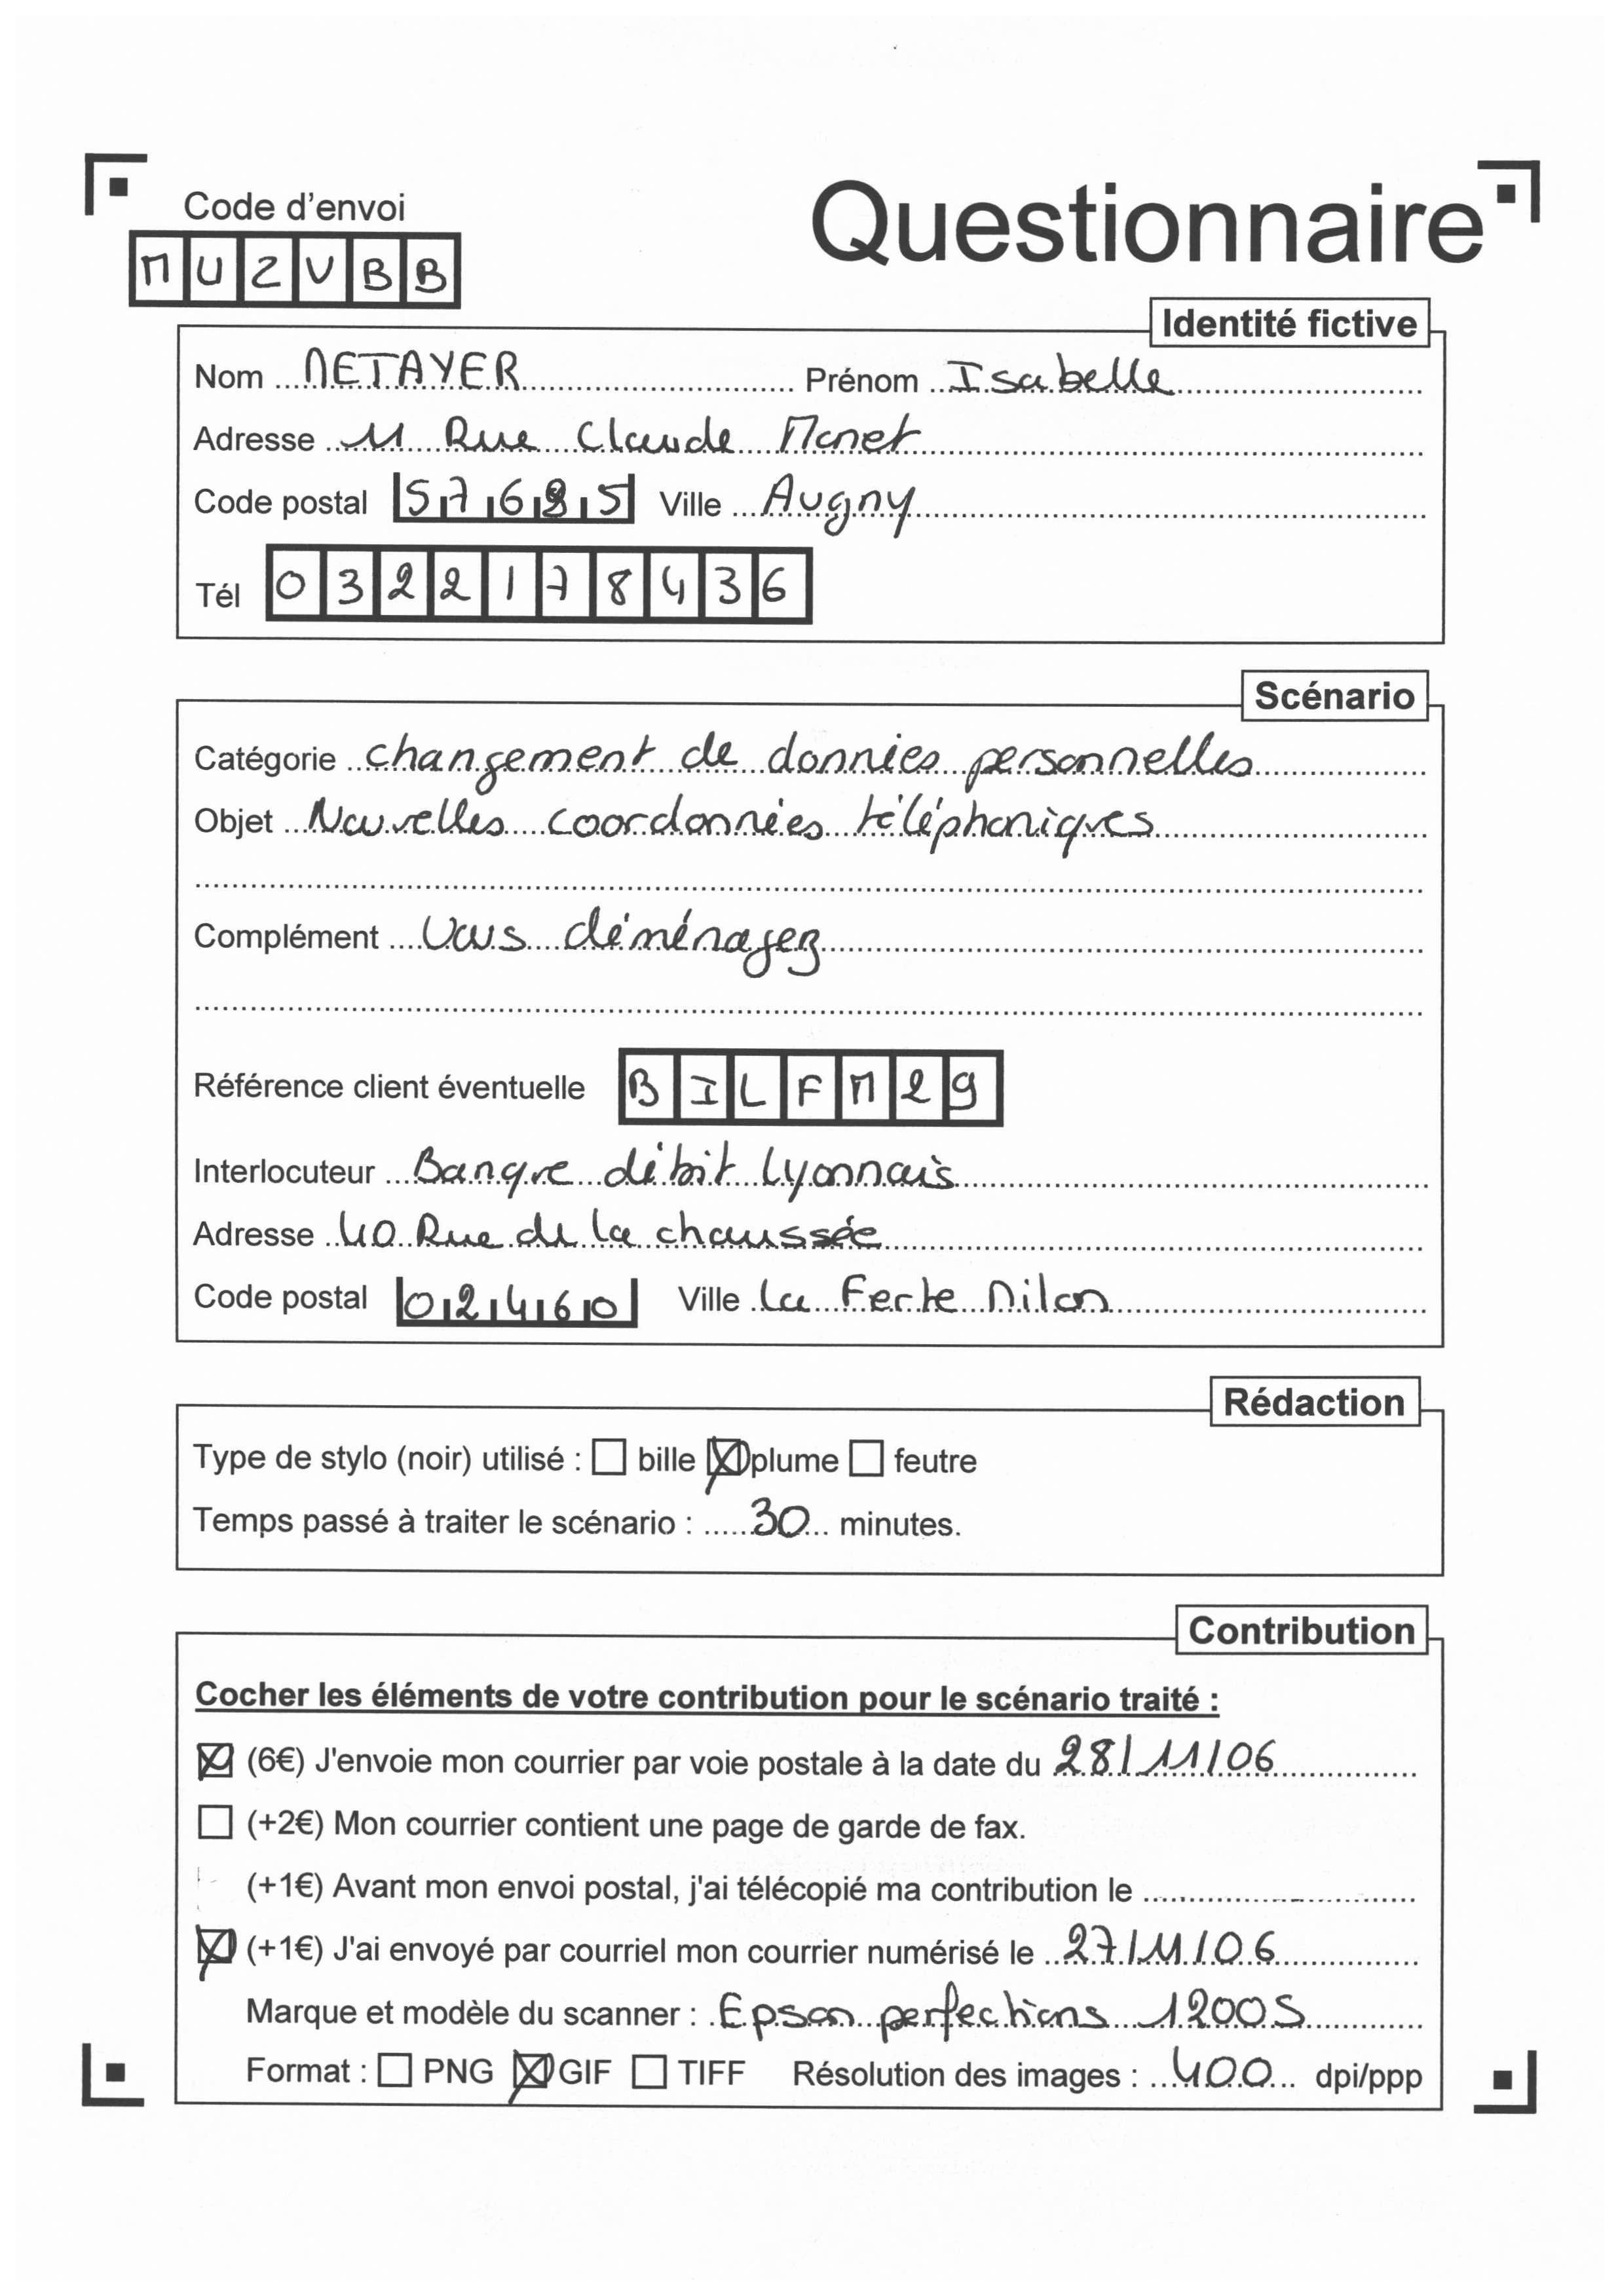 Code d'envoi
Questionnaire
MUZVBB
Identité fictive
Nom METAYER Prénom Isabelle
Adresse 11 Rue Claude Monet
Code postal 57685 Ville Augny
Tél 0322178436
Scénario
Catégorie changement de données personnelles
Objet Nouvelles coordonnées téléphoniques
Complément Vous déménagez
Référence client éventuelle BILFM29
Interlocuteur Banque débit Lyonnais
Adresse 40 Rue de la chaussée
Code postal 02460 Ville La Ferte Milon
Rédaction
Type de stylo (noir) utilisé : bille plume feutre
Temps passé à traiter le scénario : 30 minutes.
Contribution
Cocher les éléments de votre contribution pour le scénario traité :
(6€) J'envoie mon courrier par voie postale à la date du 28/11/06
(+2€) Mon courrier contient une page de garde de fax.
(+1€) Avant mon envoi postal, j'ai télécopié ma contribution le
(+1€) J'ai envoyé par courriel mon courrier numérisé le 27/11/06
Marque et modèle du scanner : Epson perfections 1200S
Format : PNG GIF TIFF Résolution des images : 400 dpi/ppp